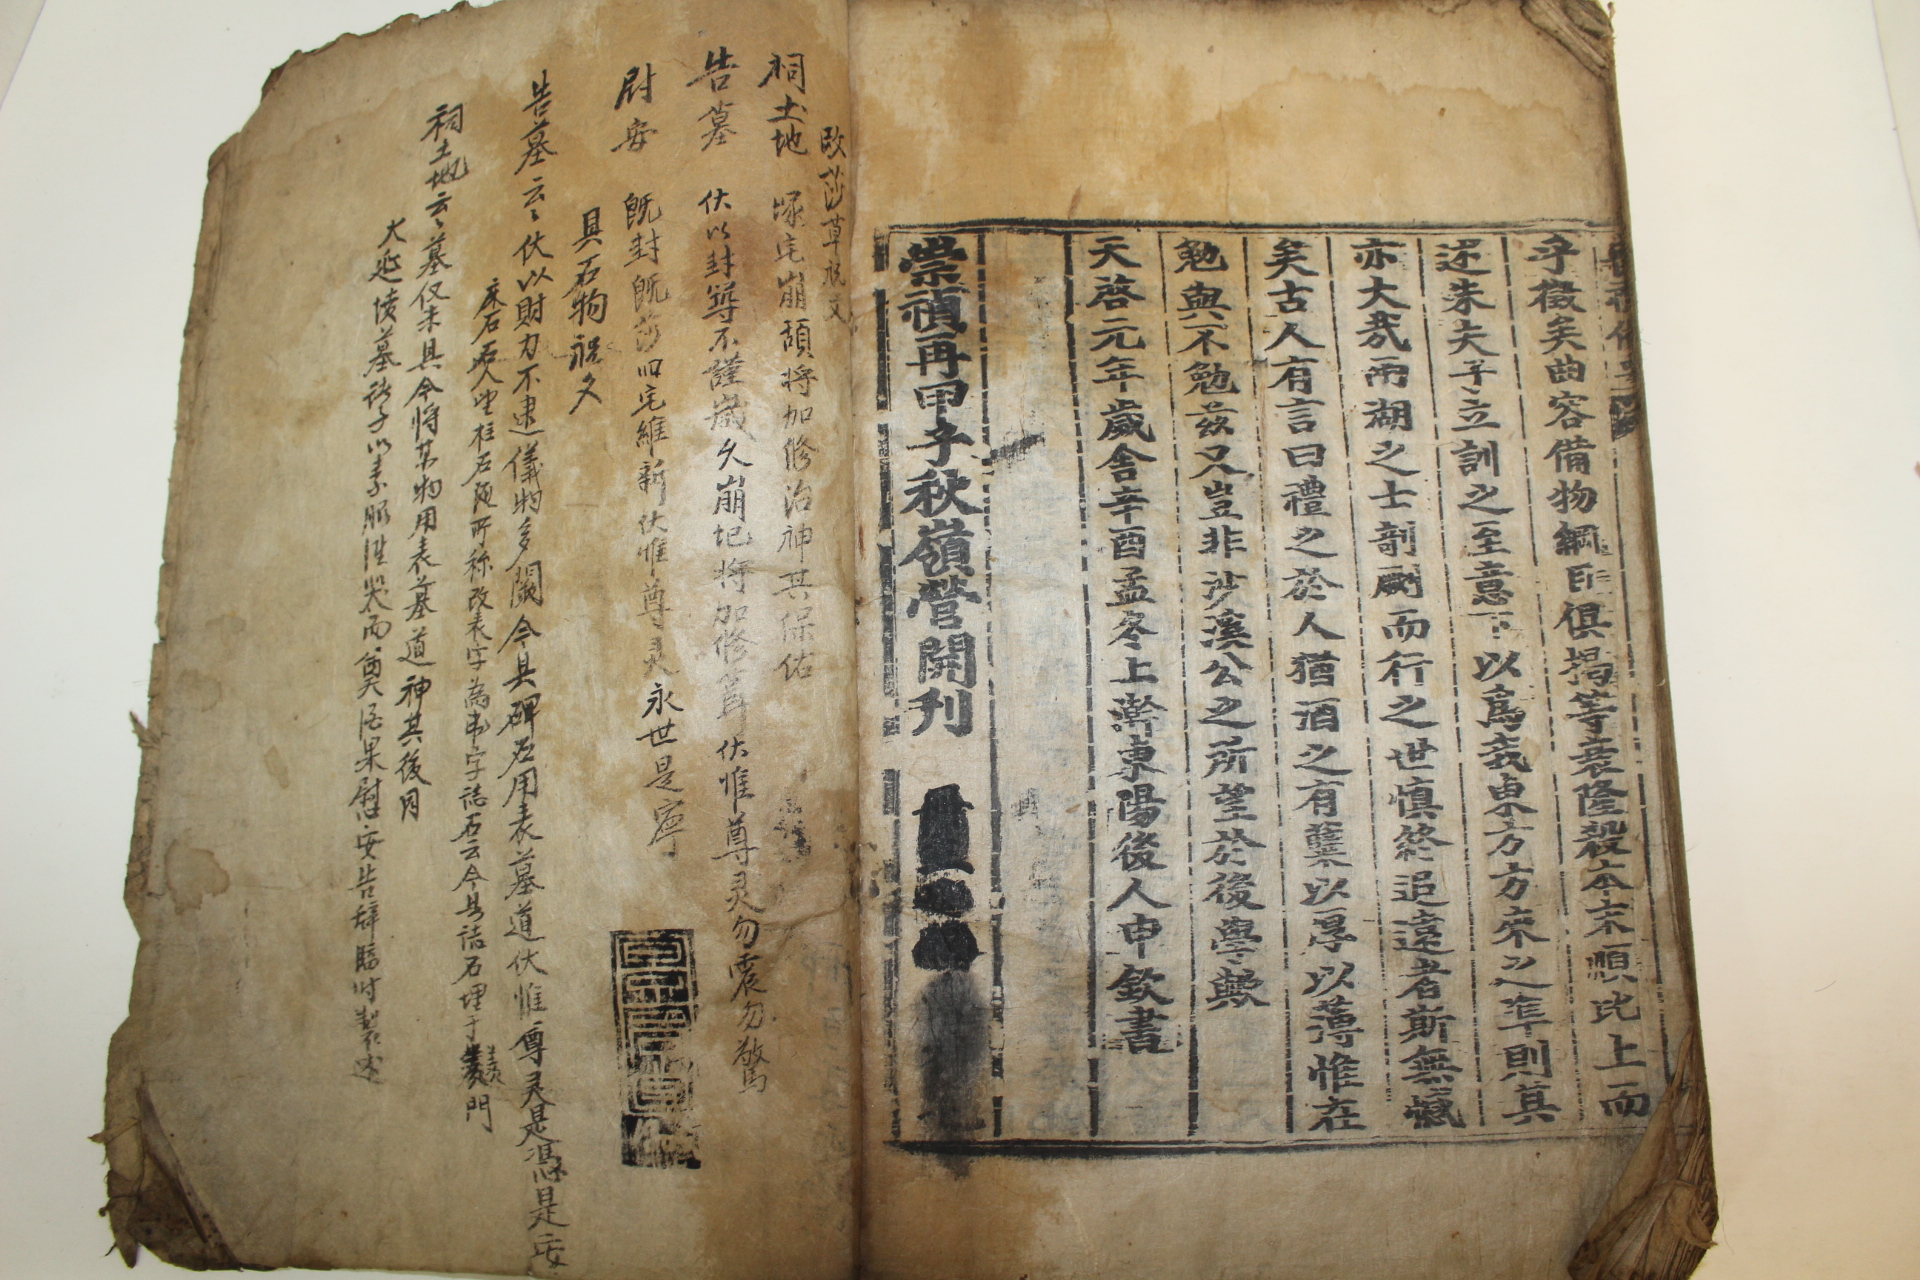 乎徵矣曲容備物綱目俱揭等衰隆殺本末順比上而
述朱夫子立訓之至意下以爲我東方方來之準則其
亦大哉兩湖之士剞劂而行之世愼終追遠者斯無憾
矣古人有言曰禮之於人猶酒之有糵以厚以薄惟在
勉與不勉玆又豈非沙溪公之所望於後學歟
天啓元年歲舍辛酉孟冬上澣東陽後人申欽書
崇禎再甲子秋嶺營開刊
改莎草祝文
祠土地 塚宅崩頹將加修治神其保佑
告墓 伏以封築不謹歲久崩圮將加修葺伏惟尊灵勿震勿驚
慰安 旣封旣莎旧宅維新伏惟尊灵永世是寧
具石物祝文
告墓云〻伏以財力不逮儀物多闕今具碑石用表墓道伏惟尊灵是憑是安
床石 柱石 所称改表字爲 字誌石云今具誌石埋于 門
祠土地云〻墓仅未具今將某物用表墓道神其後
大 墓 子以素服 哭而奠 果慰安告辞臨時製述